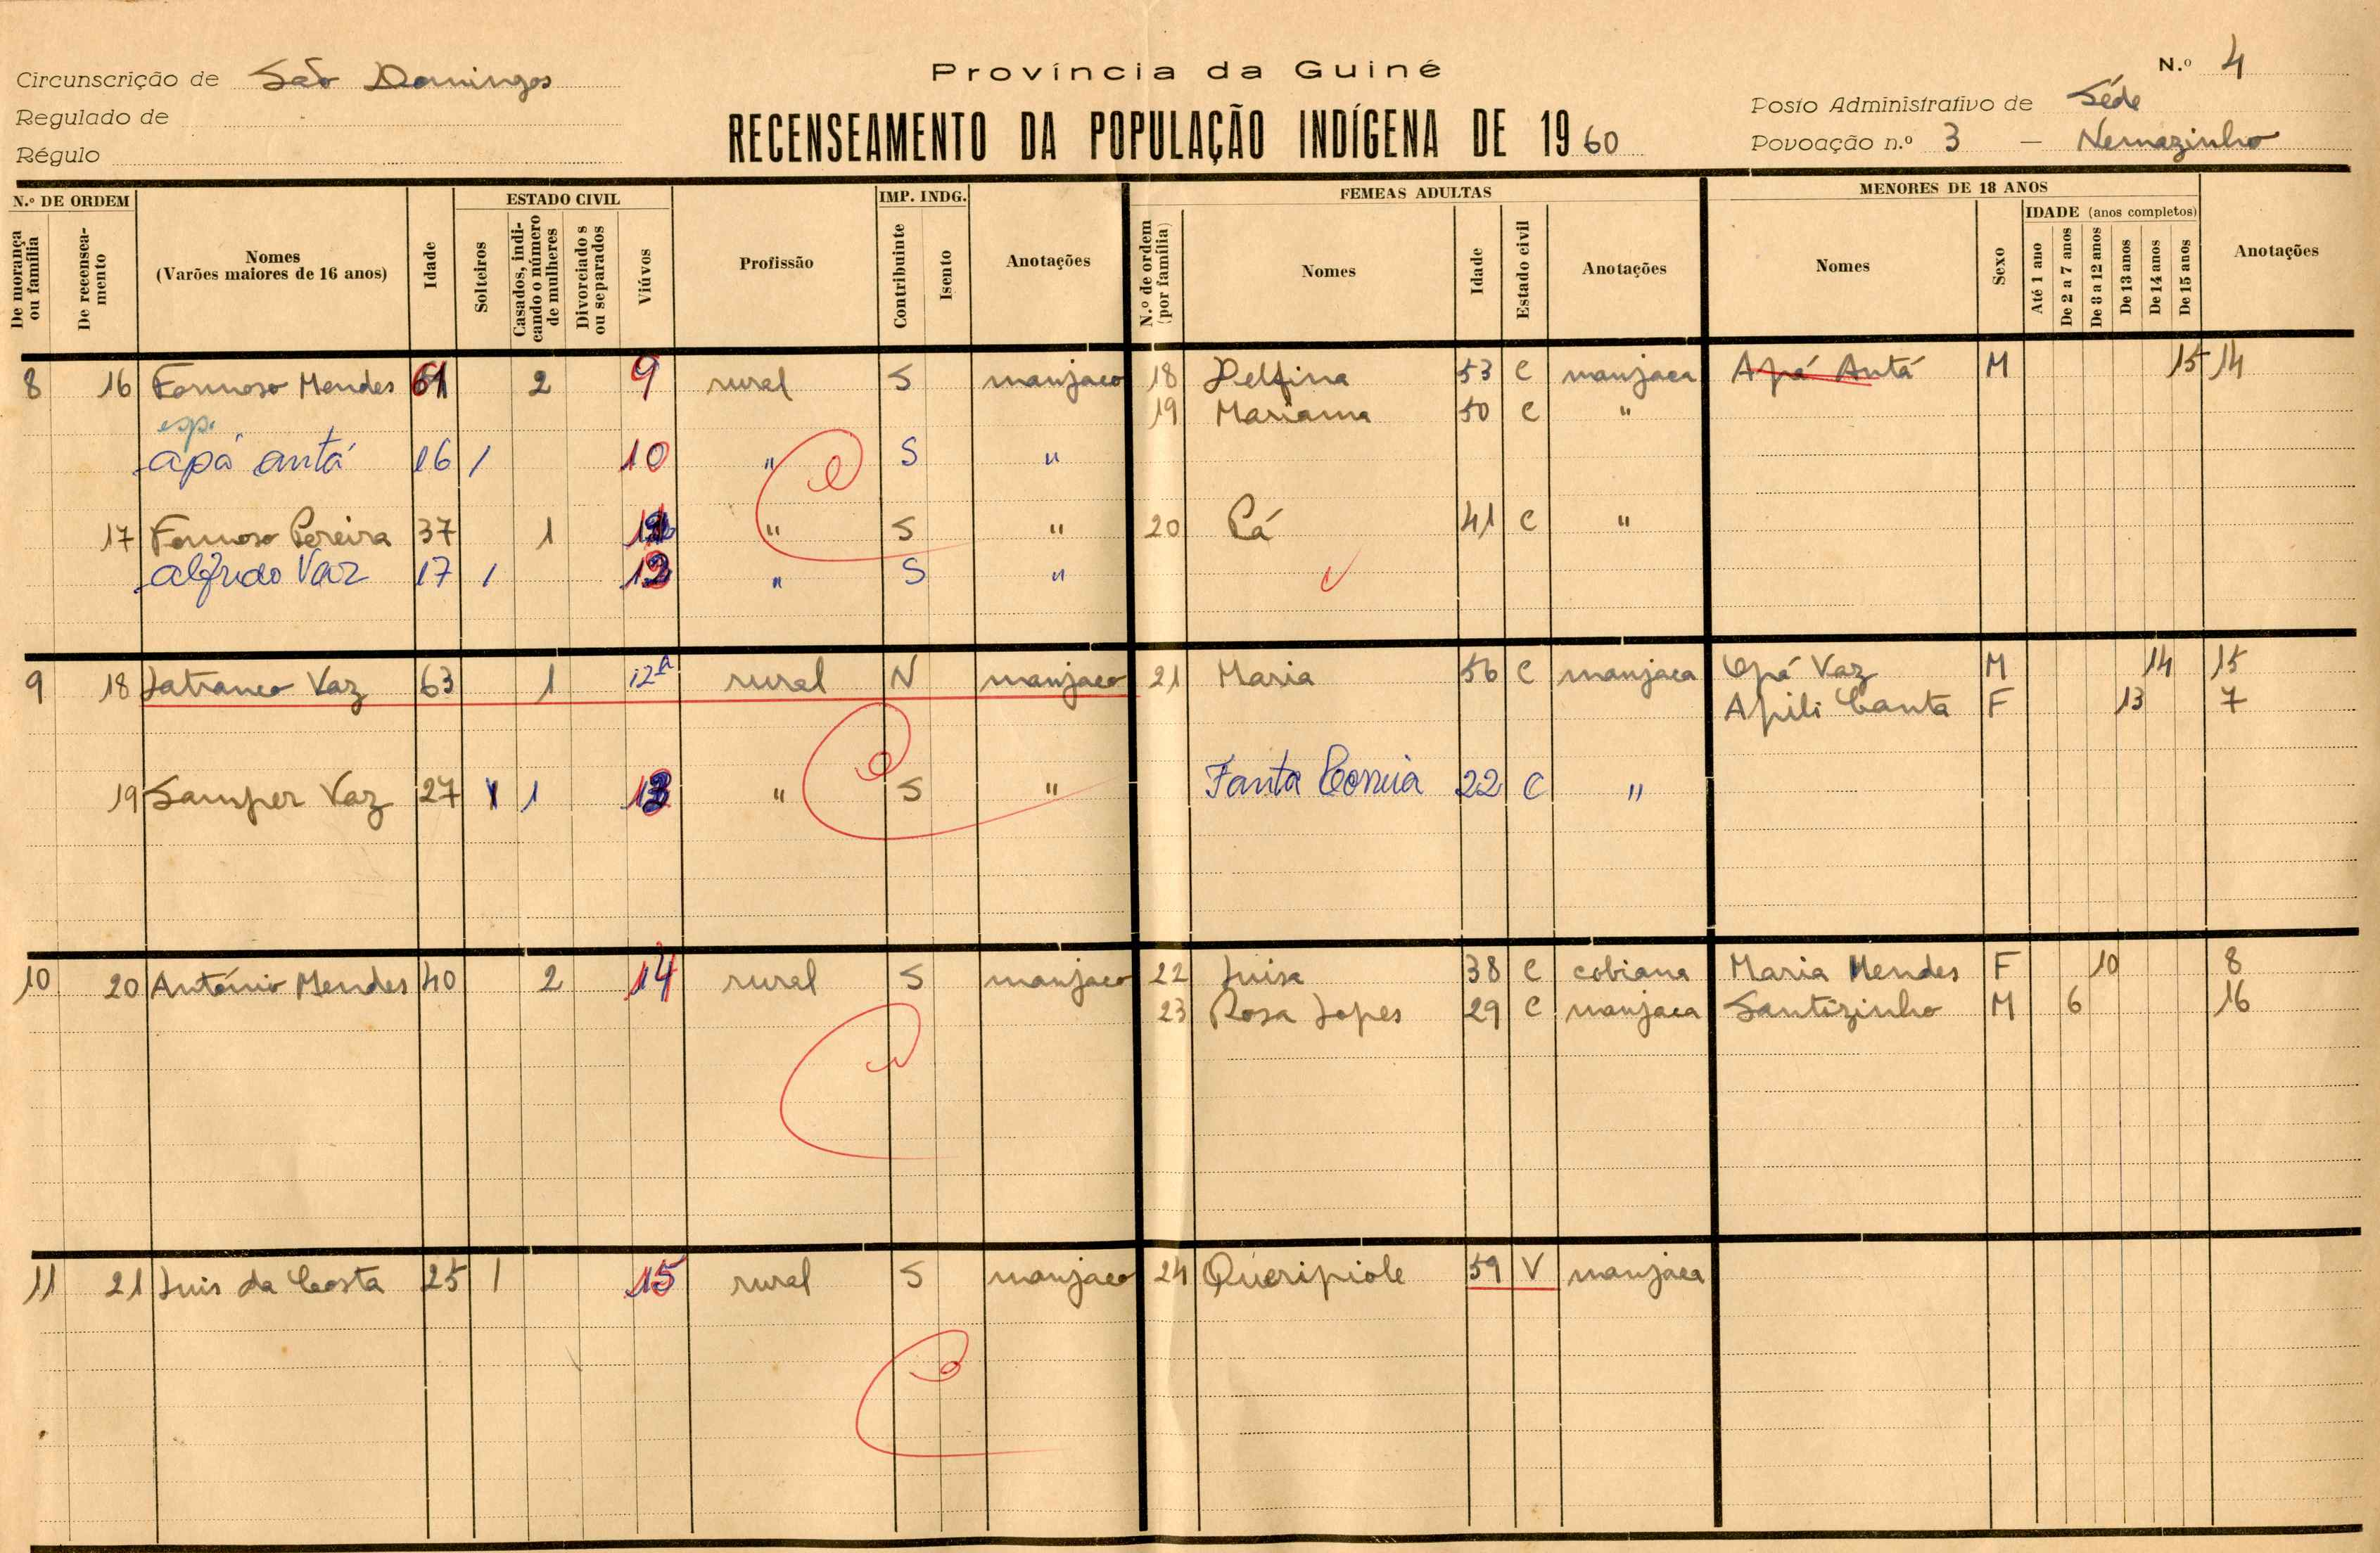 Província da Guiné
N.º 4
Circunscrição de São Domingos
Regulado de
Régulo
RECENSEAMENTO DA POPULAÇÃO INDÍGENA DE 1960
Posto Administrativo de Séde
Povoação n.º 3 — Nemazinho
N.º DE ORDEM
De morança ou família
De recenseamento
Nomes
(Varões maiores de 16 anos)
Idade
ESTADO CIVIL
Solteiros
Casados, indicando o número de mulheres
Divorciados ou separados
Viúvos
Profissão
IMP. INDG.
Contribuinte
Isento
Anotações
FEMEAS ADULTAS
N.º de ordem (por família)
Nomes
Idade
Estado civil
Anotações
MENORES DE 18 ANOS
Nomes
Sexo
IDADE (anos completos)
Até 1 ano
De 2 a 7 anos
De 8 a 12 anos
De 13 anos
De 14 anos
De 15 anos
Anotações
8 16 Formoso Mendes 61 2 9 rural S manjaco 18 Delfina 53 C manjaca Apá Antá M 15 14
19 Mariama 50 C "
esp.
apá antá 16 1 10 " S "
17 Formoso Pereira 37 1 " S " 20 Pá 41 C "
alfredo Vaz 17 1 12 " S "
9 18 Jatranco Vaz 63 1 12A rural N manjaco 21 Maria 56 C manjaca Opá Vaz M 14 15
Apili Canta F 13 7
19 Samper Vaz 27 1 13 " S " Fanta Correia 22 C "
10 20 António Mendes 40 2 14 rural S manjaco 22 Luisa 38 C cobiana Maria Mendes F 10 8
23 Rosa Lopes 29 C manjaca Santizinho M 6 16
11 21 Luis da Costa 25 1 15 rural S manjaco 24 Queripiole 59 V manjaca